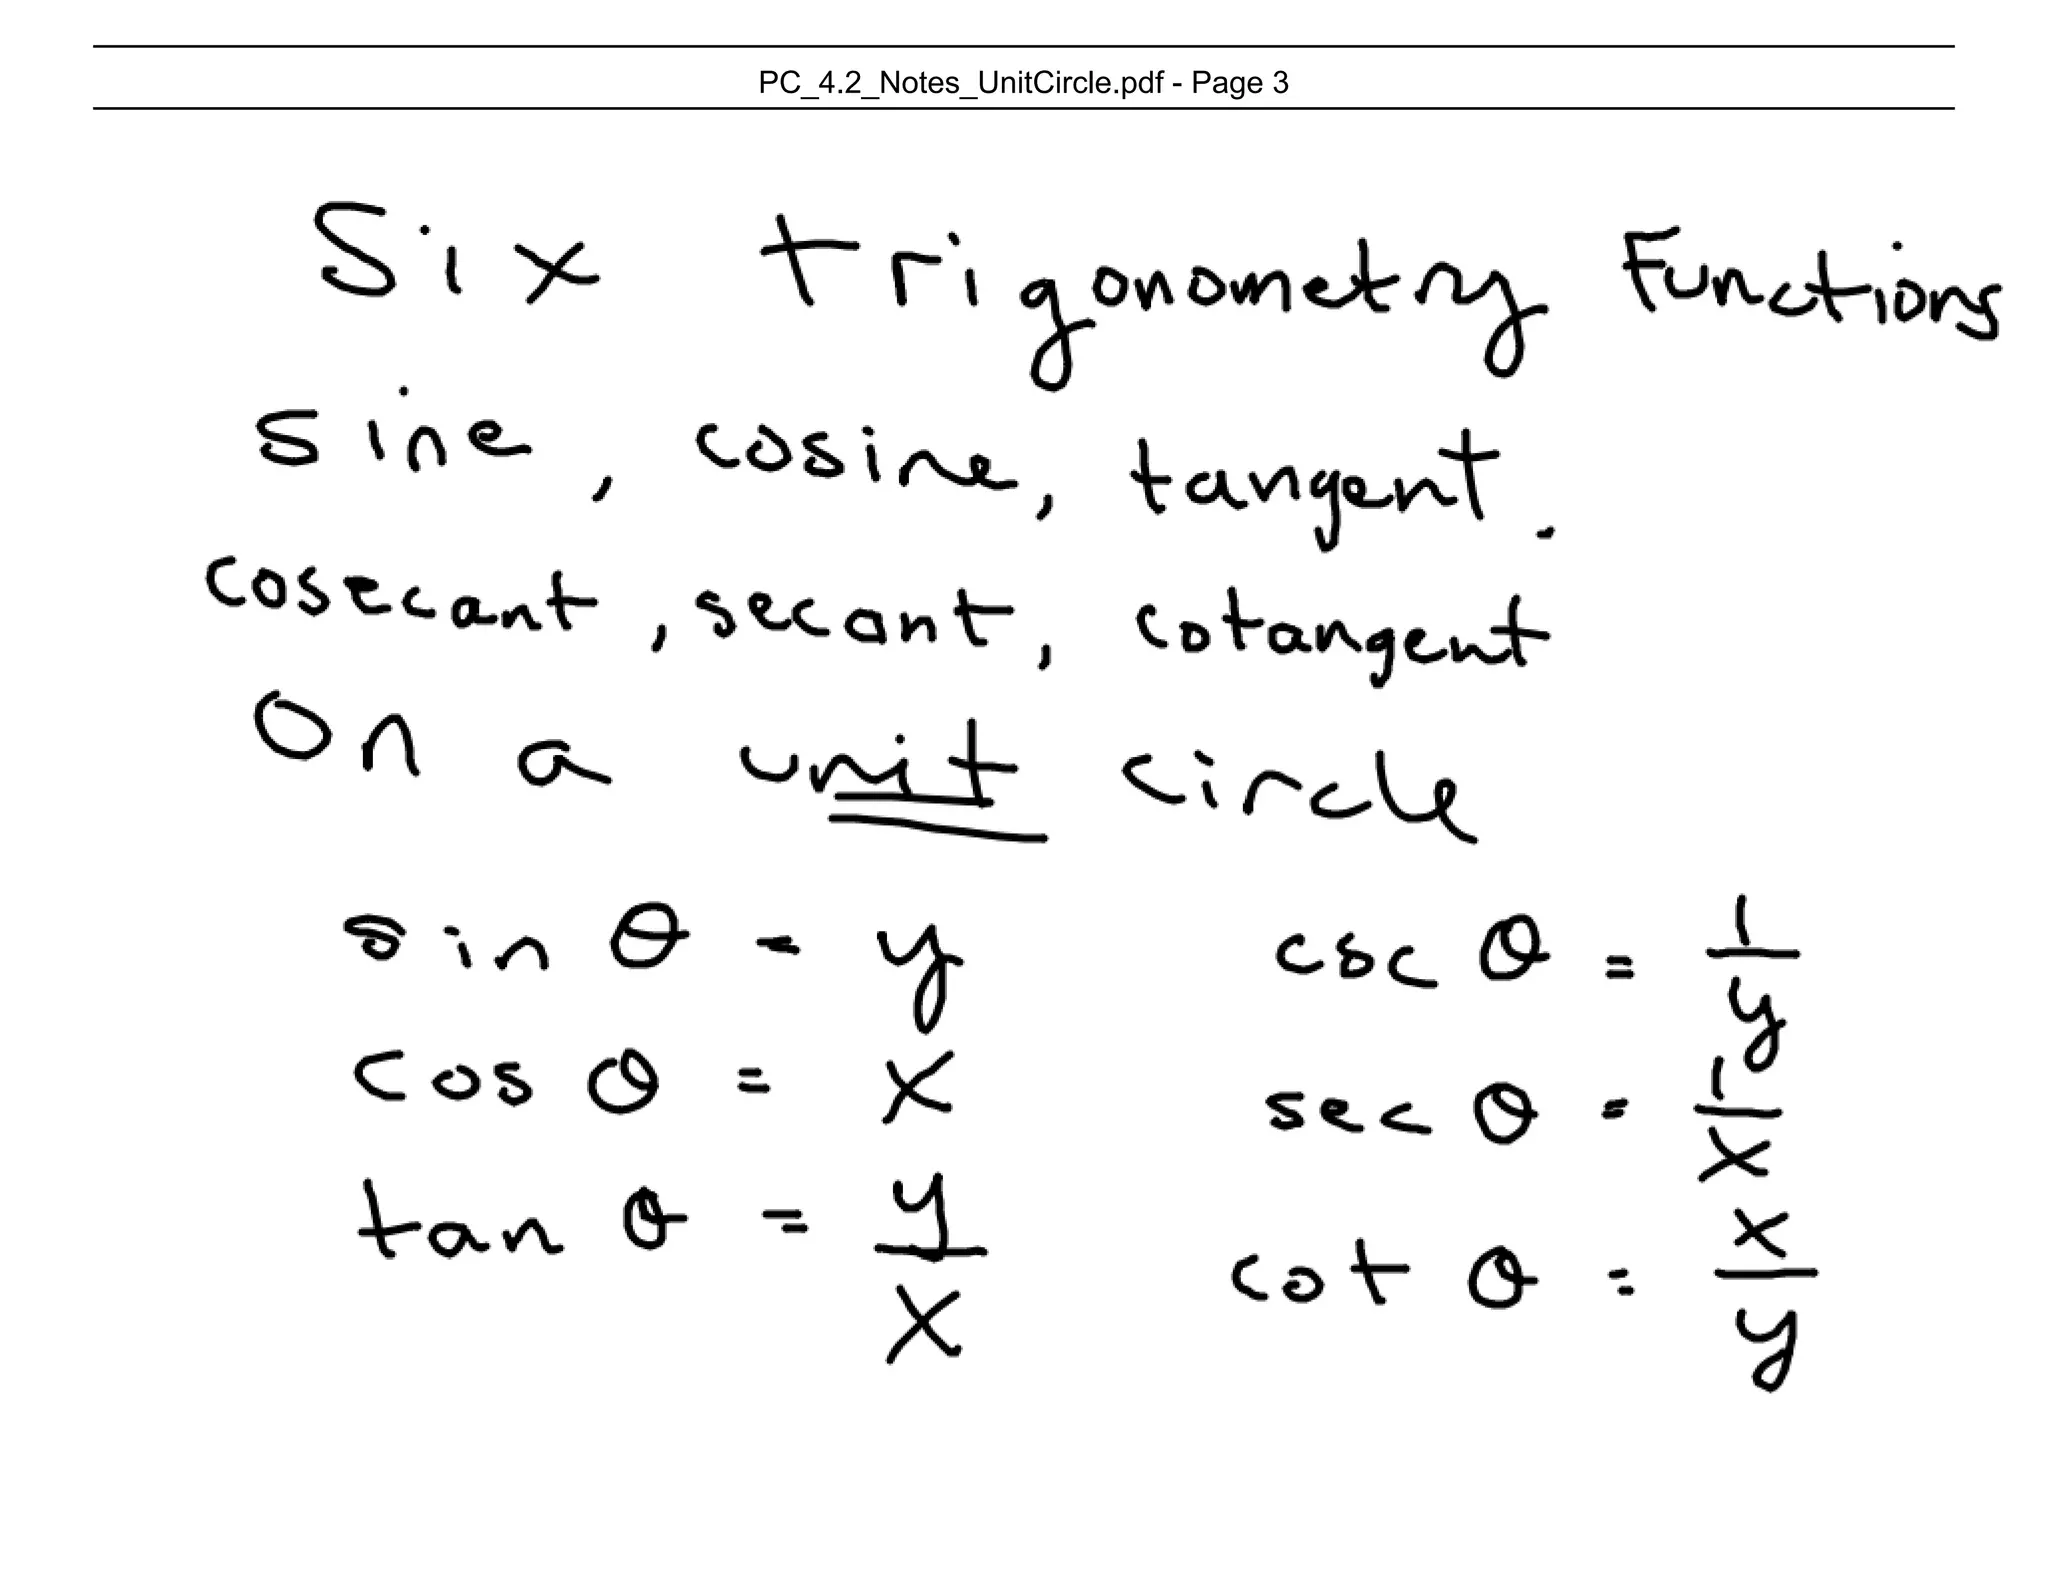 PC_4.2_Notes_UnitCircle.pdf - Page 3
Six trigonometry Functions
sine, cosine, tangent.
cosecant, secant, cotangent
On a unit circle
sin θ = y csc θ = 1/y
cos θ = x sec θ = 1/x
tan θ = y/x cot θ = x/y